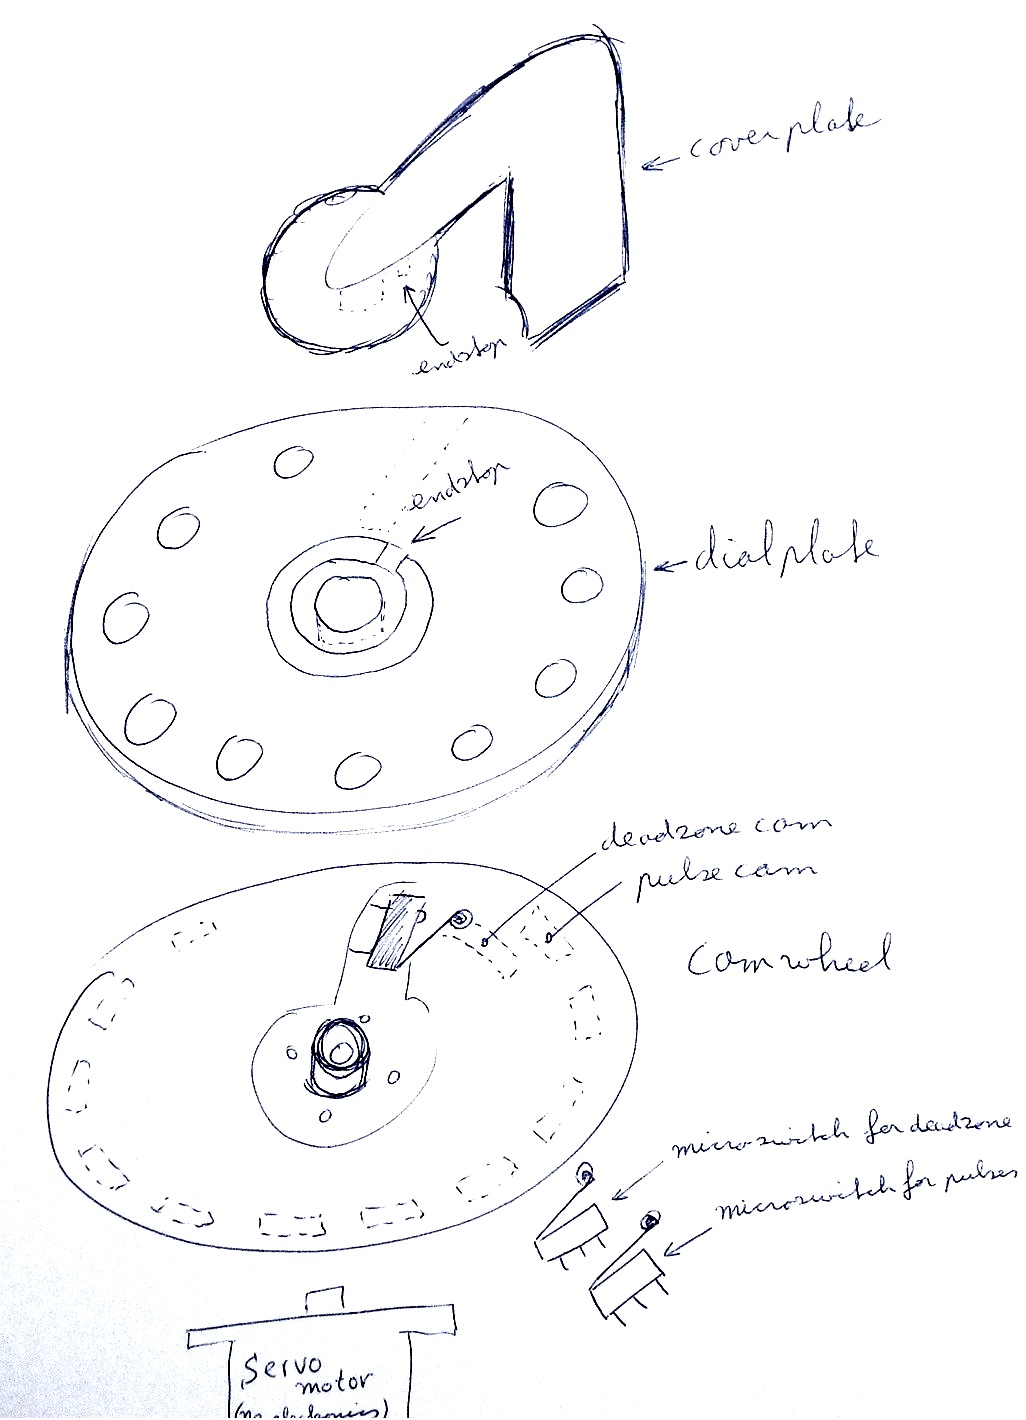 coverplate
endstop
endstop
dialplate
deadzone cam
pulse cam
Camwheel
microswitch for deadzone
microswitch for pulses
Servo
motor
(no electronics)